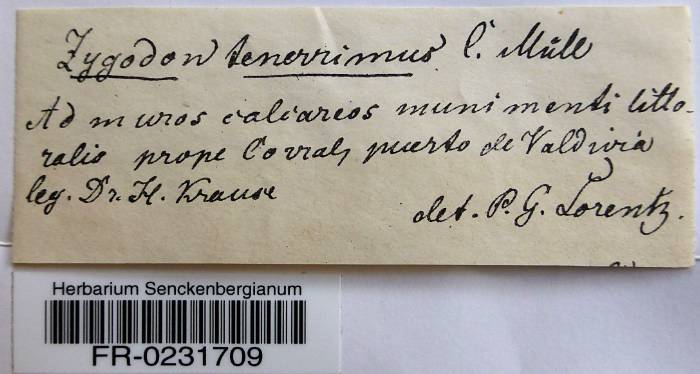 Zygodon tenerrimus C. Müll
Ad muros calcareos munimenti litto-
ralis prope Corral, puerto de Valdivia
leg. Dr. H. Krause
det. P. G. Lorentz.
Herbarium Senckenbergianum
FR-0231709